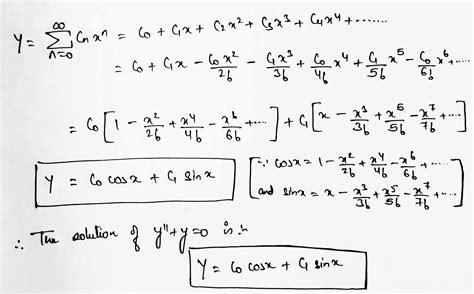 Y = ∑_{n=0}^{∞} Cn xⁿ = C0 + C1x + C2x² + C3x³ + C4x⁴ + ......
= C0 + C1x − C0x²/2b − C1x³/3b + C0/4b x⁴ + C1/5b x⁵ − C0/6b x⁶ + ....
= C0 [1 − x²/2b + x⁴/4b − x⁶/6b + ...] + C1 [x − x³/3b + x⁵/5b − x⁷/7b + ...]
Y = C0 cosx + C1 sinx
[∵ cosx = 1 − x²/2b + x⁴/4b − x⁶/6b + ....
and sinx = x − x³/3b + x⁵/5b − x⁷/7b + ....]
∴ The solution of y''+y=0 is :-
Y = C0 cosx + C1 sinx